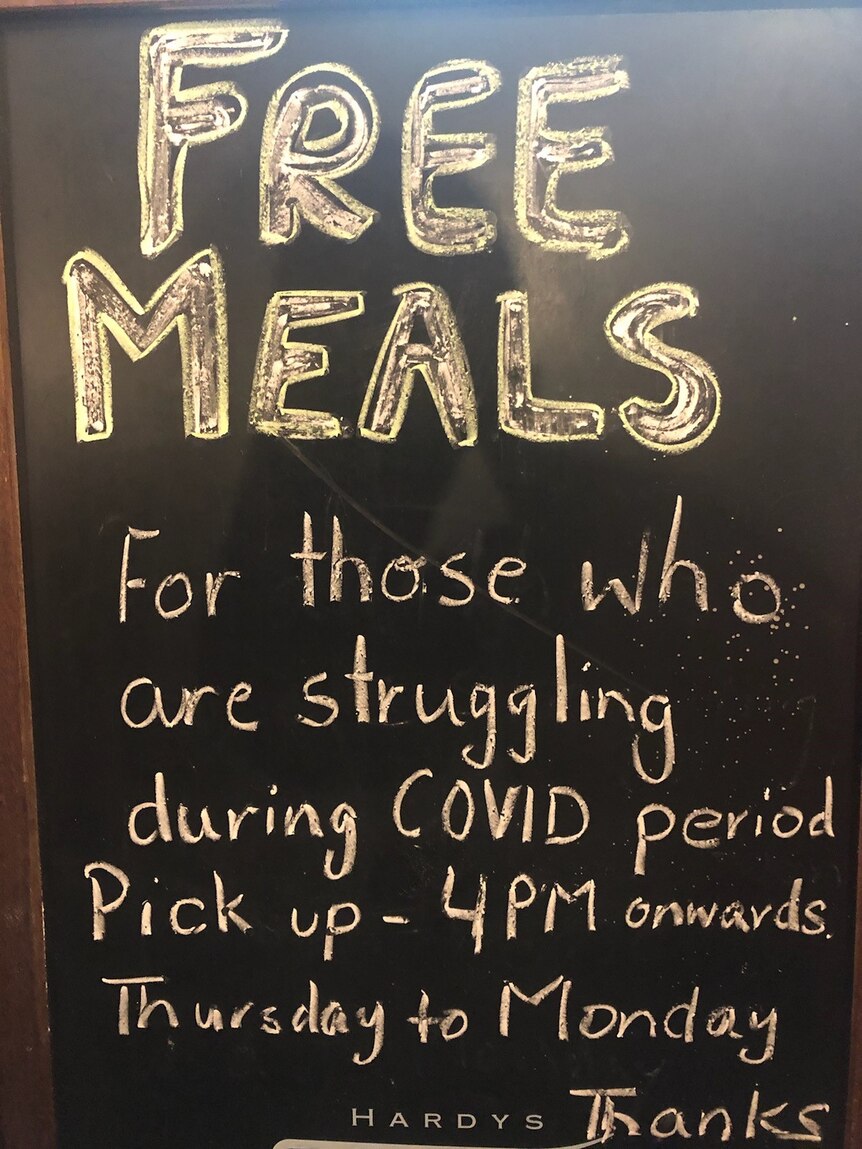 FREE
MEALS
For those who
are struggling
during COVID period
Pick up - 4PM onwards.
Thursday to Monday
HARDYS Thanks